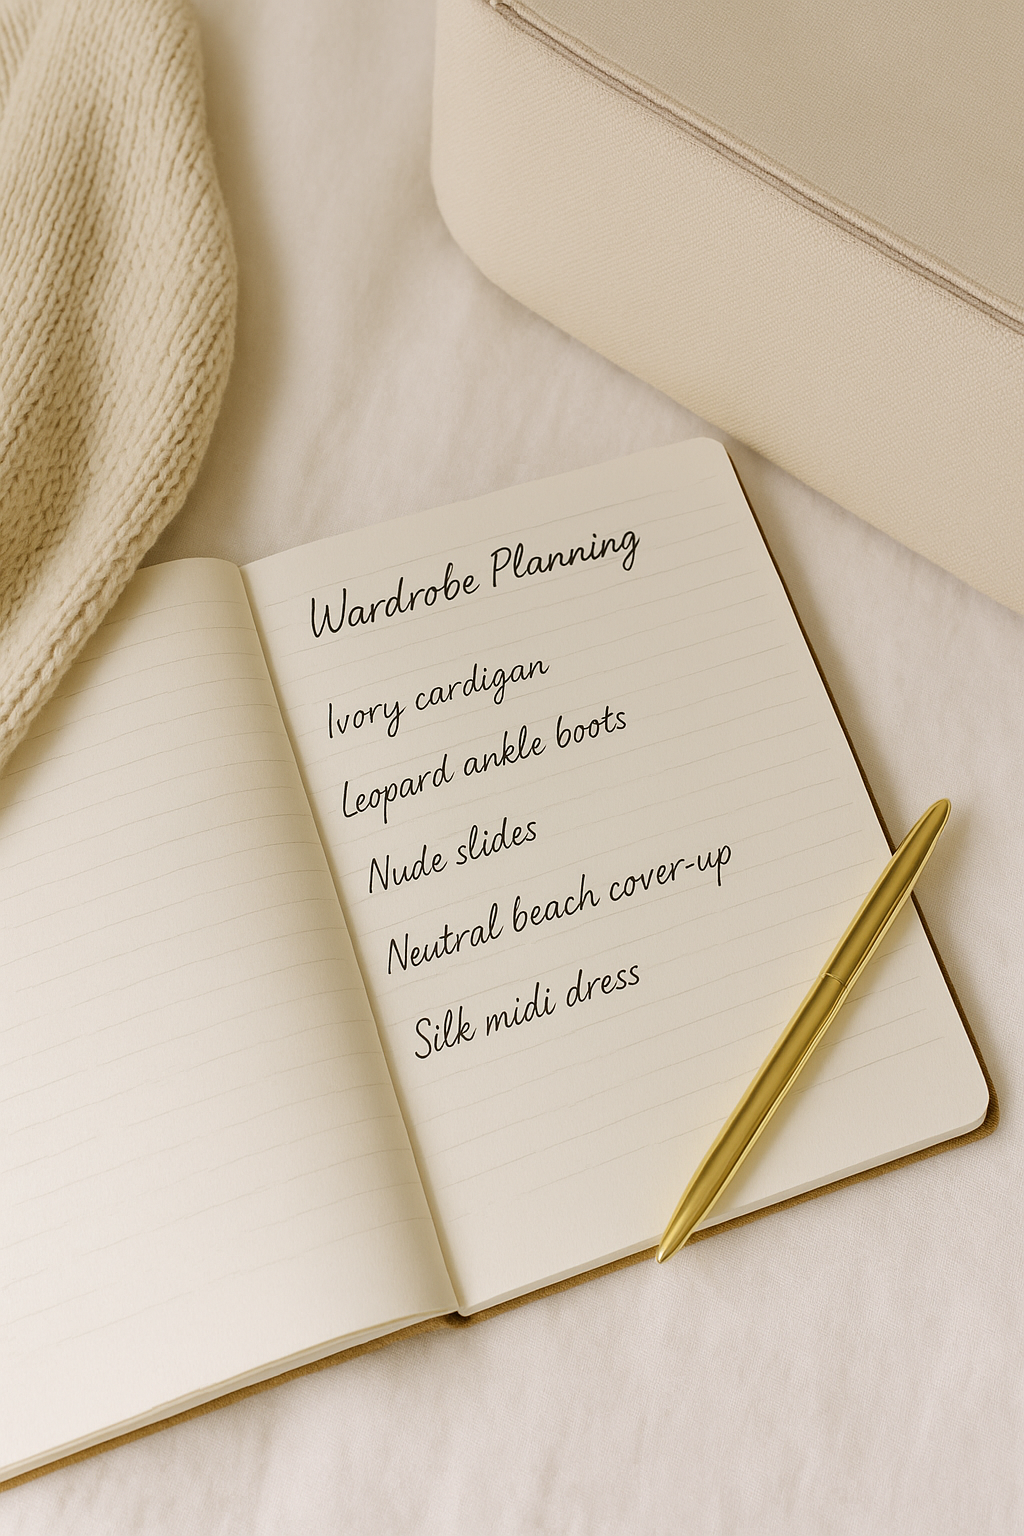 Wardrobe Planning
Ivory cardigan
Leopard ankle boots
Nude slides
Neutral beach cover-up
Silk midi dress